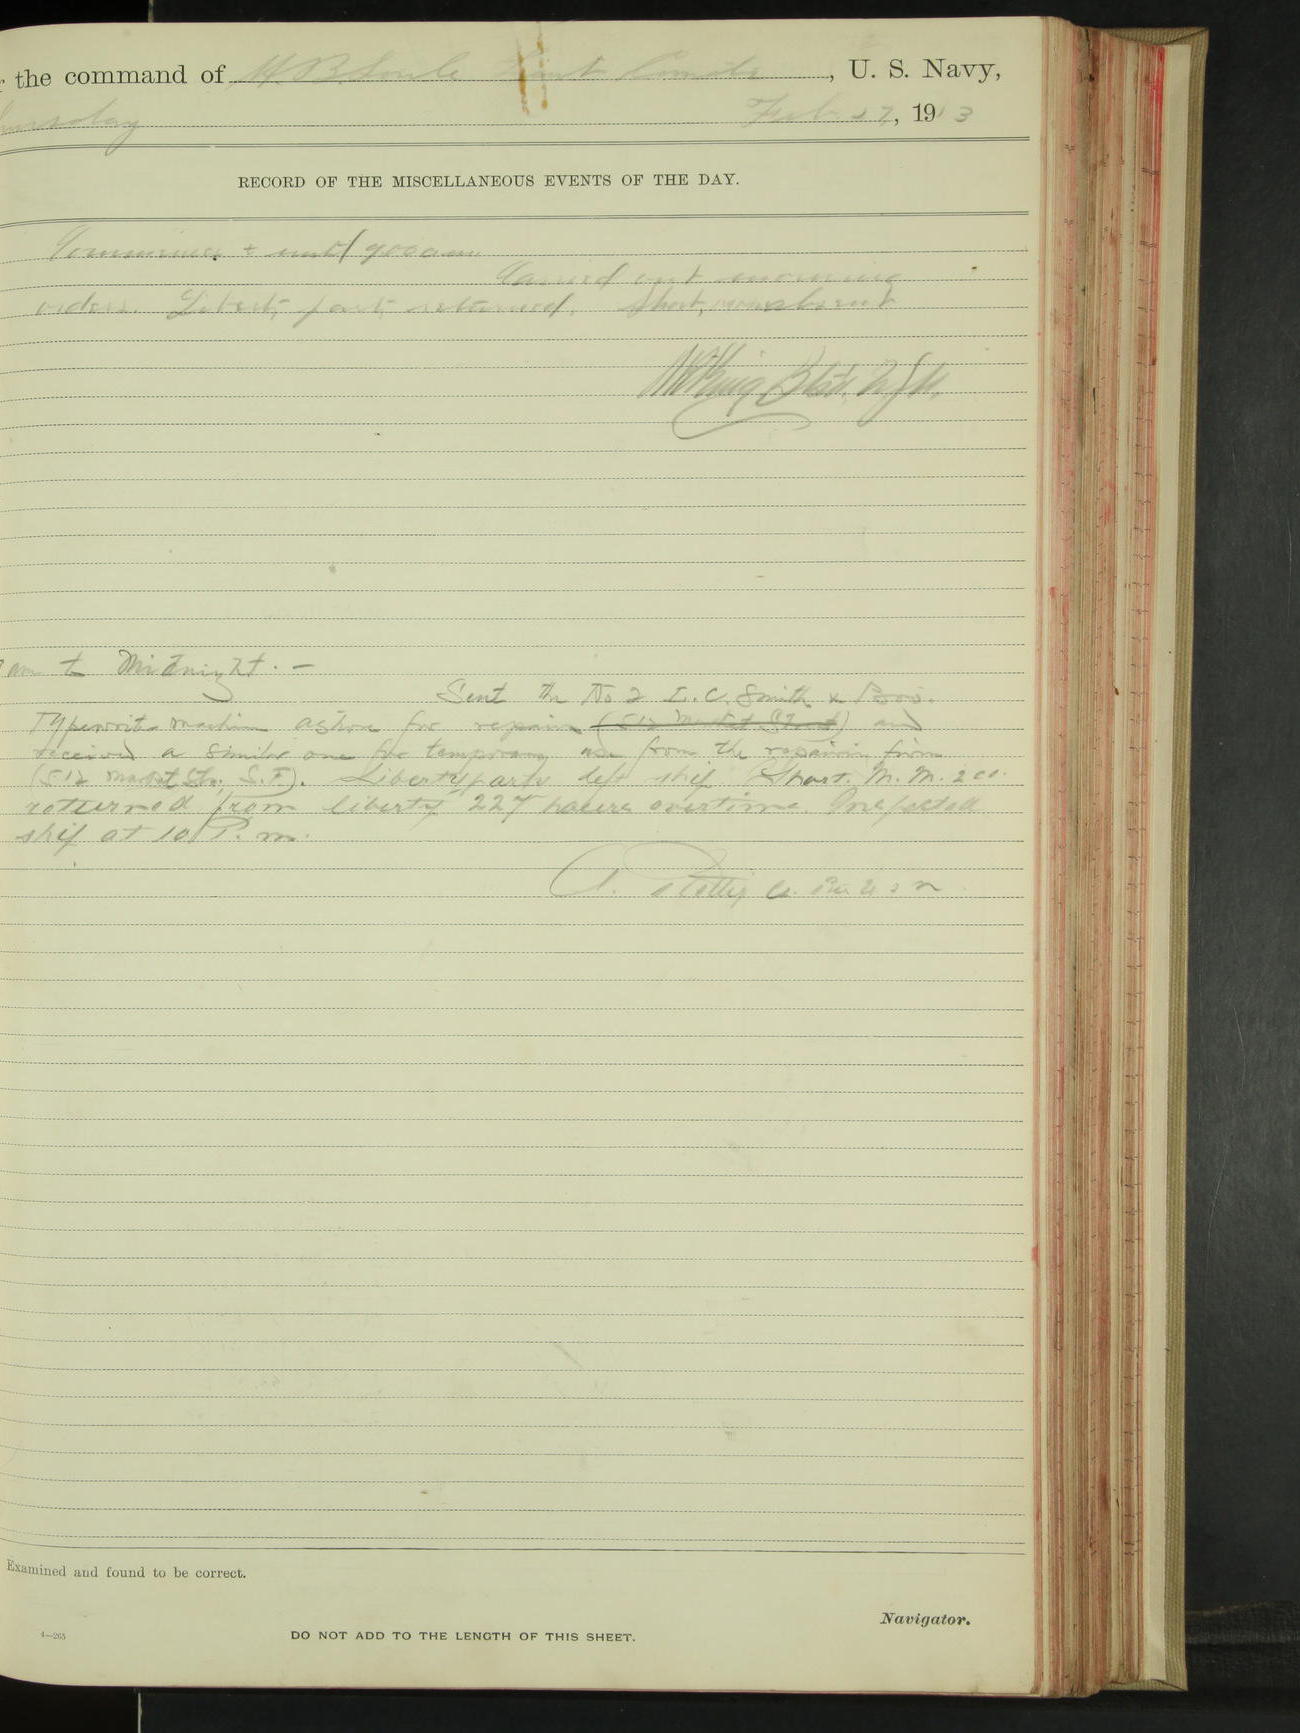 the command of H B Soule Lieut Comdr, U. S. Navy,
Thursday Feb. 27, 1913
RECORD OF THE MISCELLANEOUS EVENTS OF THE DAY.
Commence + until 9 00 am.
Carried out morning
orders. Liberty party returned. Short, absent
am to Midnight. —
Sent the No 2 L. C. Smith & Bros.
Typewrite machine ashore for repairs (512 Market Street) and
received a similar one for temporary use from the repairing firm
(512 Market Str., S.F.). Liberty party left ship. Short. M. M. 2 cl.
returned from liberty 227 hours overtime. Inspected
ship at 10 P. m.
Examined and found to be correct.
Navigator.
4—265
DO NOT ADD TO THE LENGTH OF THIS SHEET.